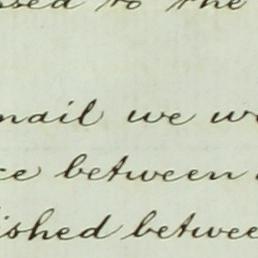 ssed to the
mail we w
ce between
ished betwee